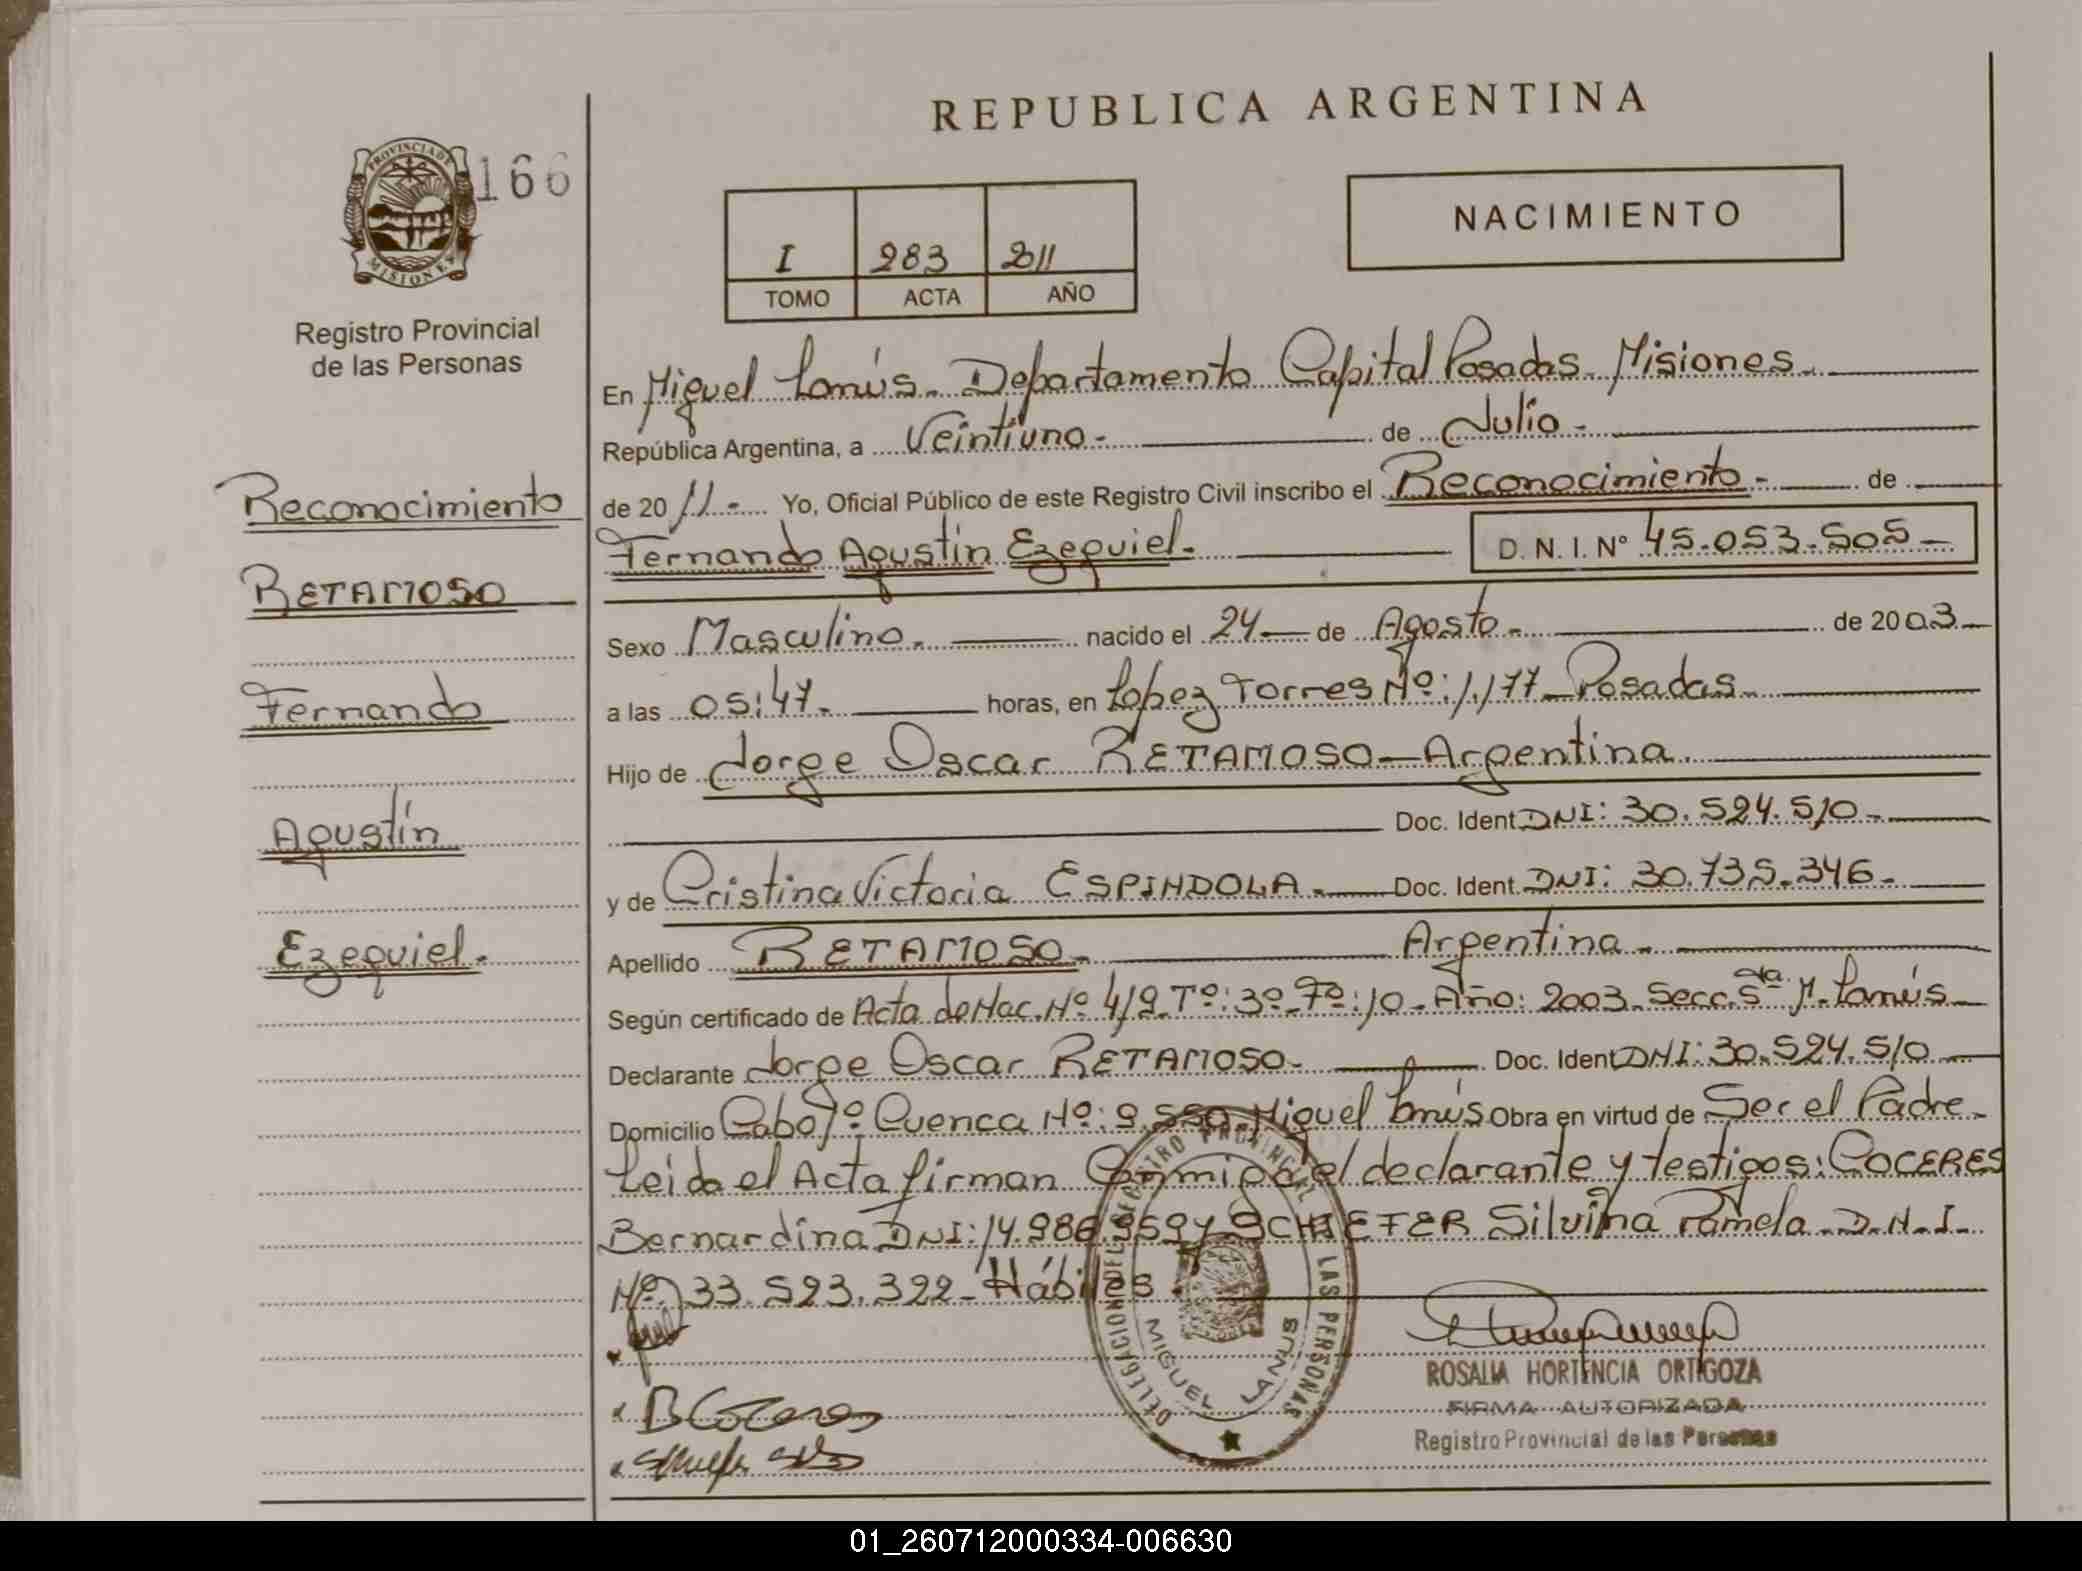 REPUBLICA ARGENTINA
PROVINCIA DE MISIONES
166
Registro Provincial
de las Personas
I 283 2011
TOMO ACTA AÑO
NACIMIENTO
Reconocimiento
RETAMOSO
Fernando
Agustín
Ezequiel.
En Miguel Lanús. Departamento Capital Posadas. Misiones.
República Argentina, a Veintiuno- de Julio-
de 2011.- Yo, Oficial Público de este Registro Civil inscribo el Reconocimiento- de
Fernando Agustín Ezequiel.- D. N. I. Nº 45.053.505-
Sexo Masculino. nacido el 24 de Agosto. de 2003
a las 05:47. horas, en Lopez Torres Nº: 1.177 Posadas
Hijo de Jorge Oscar RETAMOSO-Argentina.
Doc. Ident DNI: 30.524.510-
y de Cristina Victoria ESPINDOLA.- Doc. Ident. DNI: 30.735.346-
Apellido RETAMOSO.- Argentina.-
Según certificado de Acta de Nac. Nº 419. Tº: 3º Fº: 10- Año: 2003. Secc. 5ta M. Lanús
Declarante Jorge Oscar RETAMOSO- Doc. Ident DNI: 30.524.510
Domicilio Cabo 1º Cuenca Nº: 9.550. Miguel Lanús Obra en virtud de Ser el Padre-
Leida el Acta firman Conmigo el declarante y testigos: COCERES
Bernardina DNI: 14.986.959 y SCHIEFER Silvina Pamela D.N.I.
Nº: 33.523.322- Hábiles.
DELEGACION DEL REGISTRO PROVINCIAL DE LAS PERSONAS
MIGUEL LANUS
ROSALIA HORTENCIA ORTIGOZA
FIRMA AUTORIZADA
Registro Provincial de las Personas
B Coceres
01_260712000334-006630